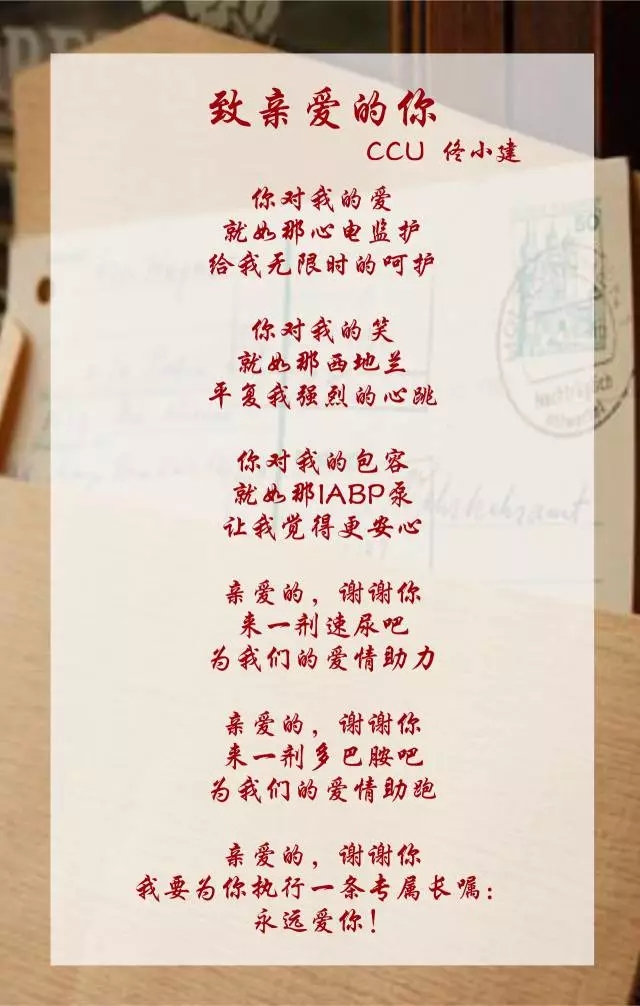 致亲爱的你
CCU 佟小建
你对我的爱
就如那心电监护
给我无限时的呵护
你对我的笑
就如那西地兰
平复我强烈的心跳
你对我的包容
就如那IABP泵
让我觉得更安心
亲爱的，谢谢你
来一剂速尿吧
为我们的爱情助力
亲爱的，谢谢你
来一剂多巴胺吧
为我们的爱情助跑
亲爱的，谢谢你
我要为你执行一条专属长嘱：
永远爱你！
50
Nachträglich
entwertet